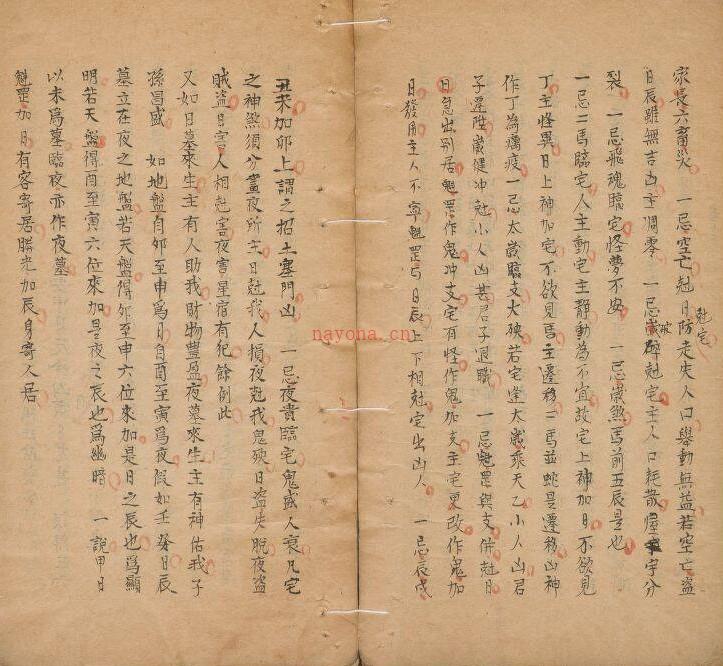 家長六畜災　一忌空亡尅日防走失人口舉動無益若空亡盜
尅宅
日辰雖無吉凶主凋零　一忌歲破尅宅主人口耗散屋宇分
裂　一忌飛魂臨宅怪夢不安　一忌歲煞馬前五辰是也
一忌二馬臨宅人主動宅主靜動為不宜故宅上神加日不欲見
丁主怪異日上神加宅不欲見馬主遷移二馬並蛇是遷移凶神
作丁為癘疫一忌太歲臨支大殃若宅逢太歲乘天乙小人凶君
子遷陞歲健冲尅小人凶甚君子退職　一忌魁罡與支併尅日
日急出别居魁罡作鬼冲支宅有怪作鬼加支主宅更改作鬼加
日發用主人不寧魁罡与日辰上下相尅定出凶人　一忌辰戌
丑未加卯上謂之招土塞門凶　一忌夜貴臨宅鬼盛人衰凡宅
之神煞須分晝夜所主日尅我人損夜尅我鬼殃日盜失脫夜盜
賊盜日害人相尅害夜害星宿有犯餘倒此
又如日墓來生主有人助我財物豐盈夜墓來生主有神佑我子
孫昌盛　如地盤自卯至申爲日自酉至寅爲夜假如壬癸日辰
墓立在夜之地盤若天盤得卯至申六位來加是日之辰也爲顯
明若天盤得酉至寅六位來加是夜之辰也爲幽暗　一說甲日
以未爲墓臨夜亦作夜墓
魁罡加日有客寄居勝光加辰身寄人居
nayona.cn